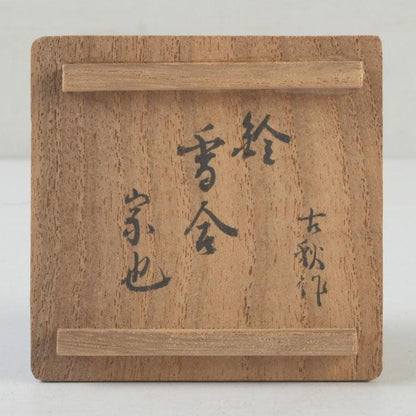 古秋作
鈴
香合
宗也